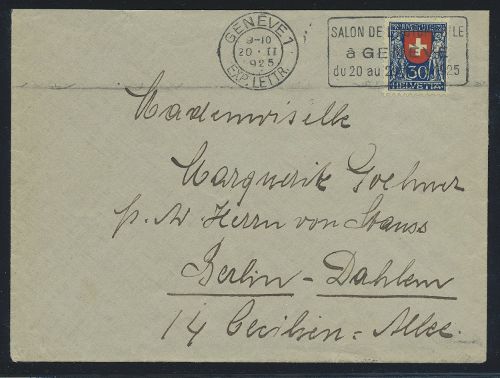 GENÈVE 1
9-10
20·II
1925
EXP. LETTR.
SALON DE L
à GE
du 20 au 2
25
30
HELVETIA
Mademoiselle
Marguerite Goehner
p. Ad. Herrn von Stauss
Berlin - Dahlem
14 Cecilien-Allee.